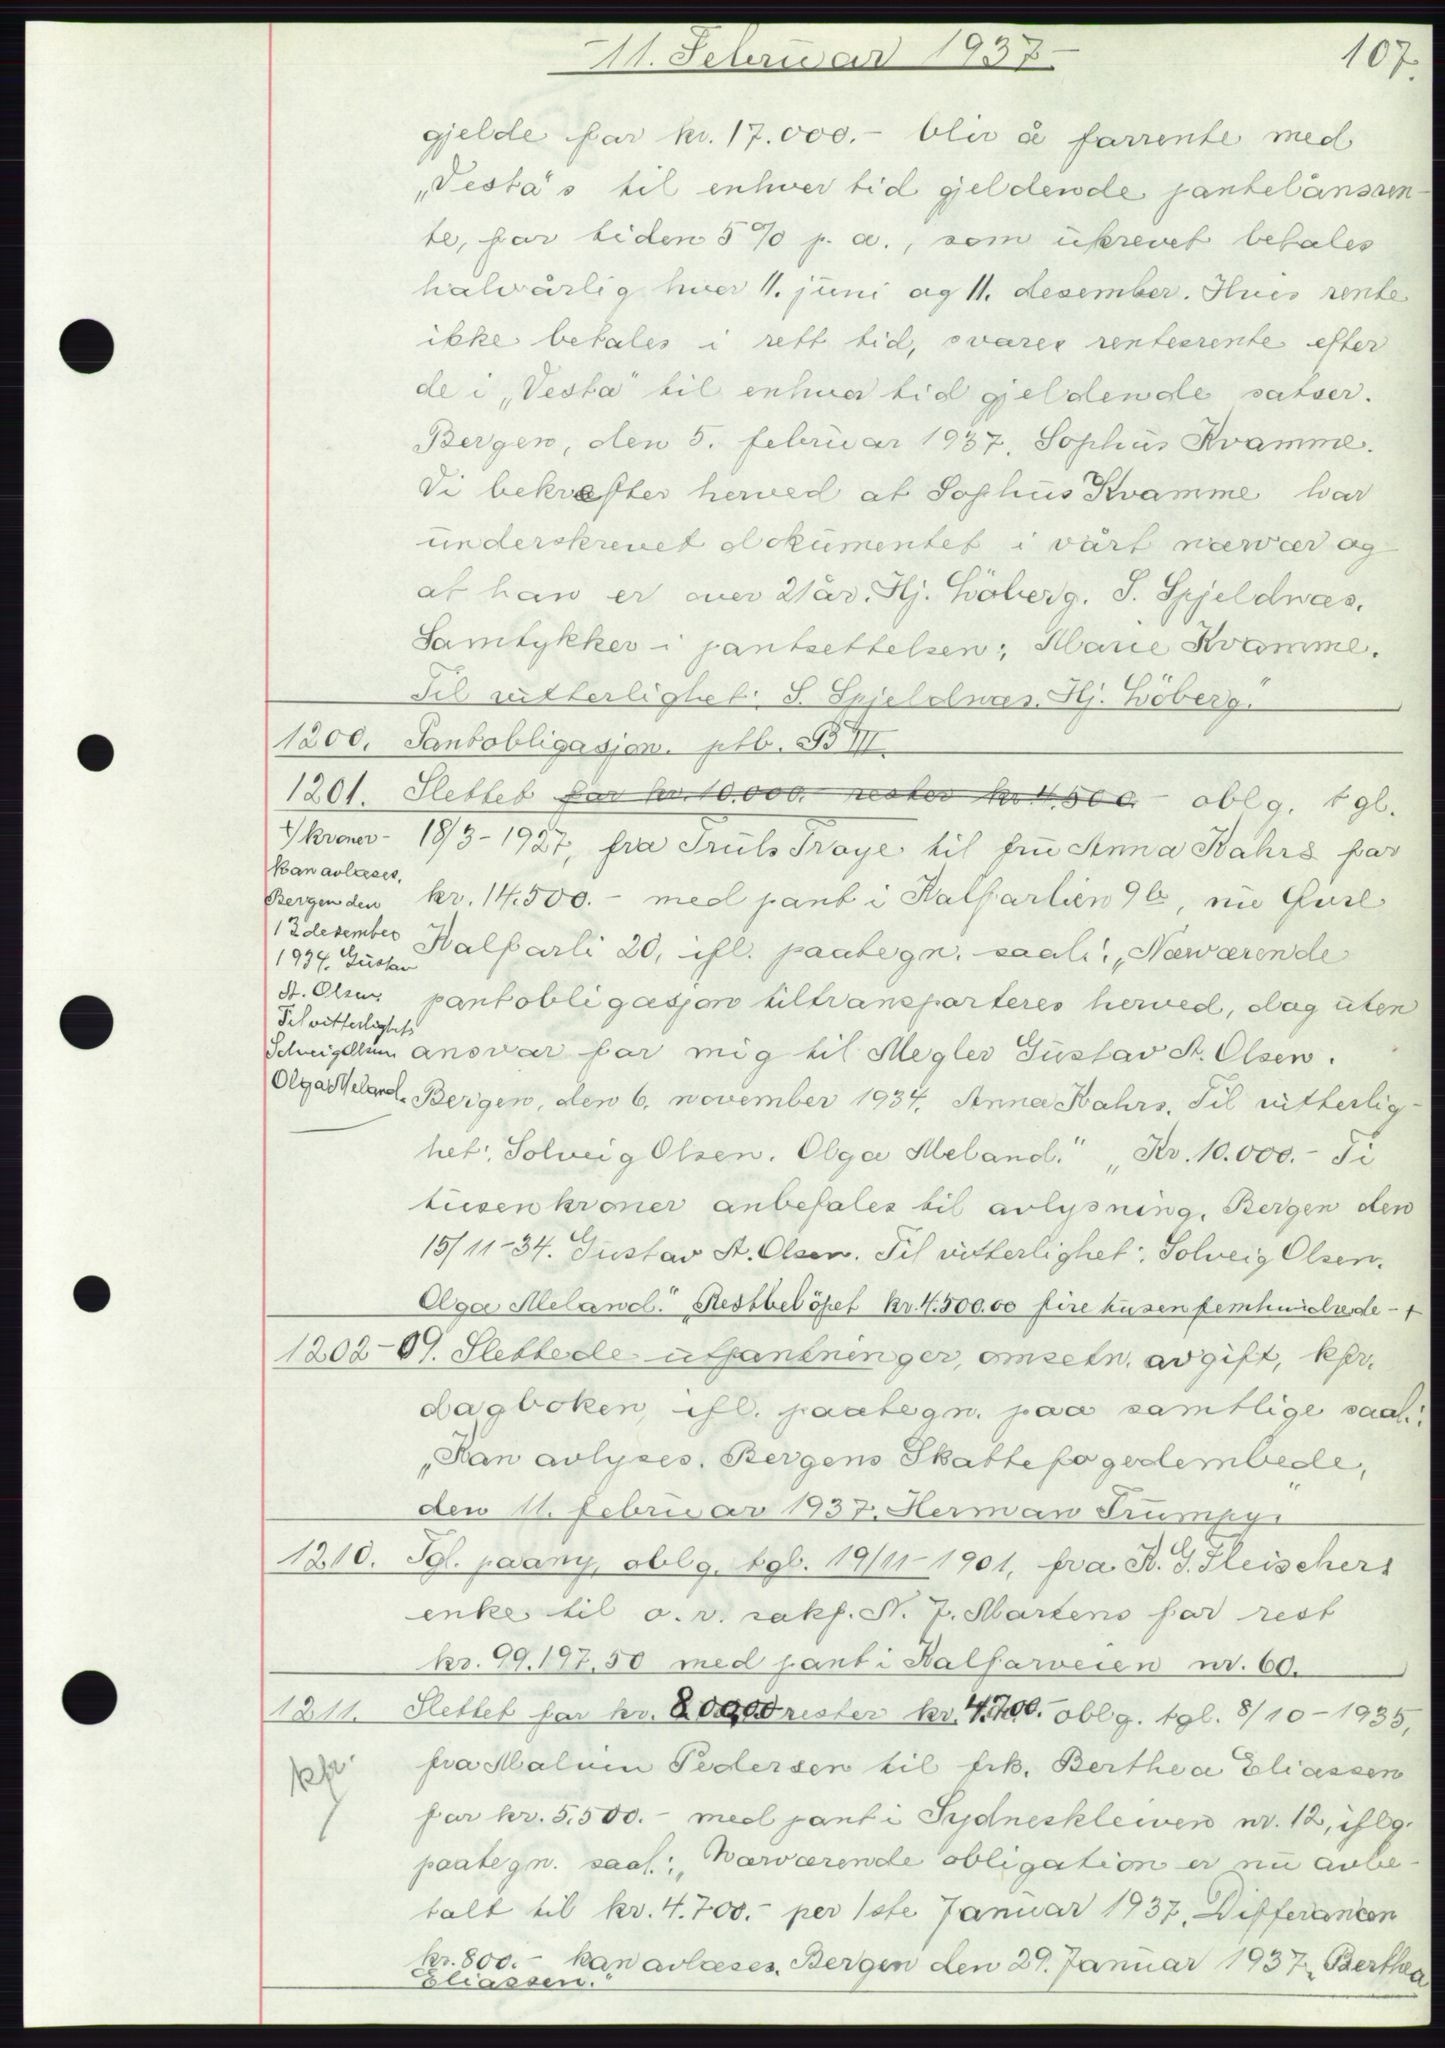 - 11. Februar 1937 -
107.
gjelde for kr. 17.000.- blir å forrente med
„Vesta"s til enhver tid gjeldende pantelånsren-
te, for tiden 5% p. a., som ukrevet betales
halvårlig hver 11. juni og 11. desember. Hvis rente
ikke betales i rett tid, svares rentesrente efter
de i „Vesta" til enhver tid gjeldende satser.
Bergen, den 5. februar 1937. Sophus Kvamme.
Vi bekrefter herved at Sophus Kvamme har
underskrevet dokumentet i vårt nærvær og
at han er over 21 år. Hj. Löberg. S. Spjeldnæs.
Samtykker i pantsettelsen: Marie Kvamme.
Til vitterlighet: S. Spjeldnæs. Hj. Löberg."
1200. Pantobligasjon. ptb. B III.
1201. Slettet for kr. 10.000.- rester kr 4.500.- oblg. tgl.
18/3-1927, fra Truls Troye til fru Anna Kahrs for
kr. 14.500.- med pant i Kalfarlien 9b, nu Øvre
Kalfarli 20, ifl. paategn. saal.: „Nærværende
pantobligasjon tiltransporteres herved, dog uten
ansvar for mig til Megler Gustav A. Olsen.
Bergen, den 6. november 1934. Anna Kahrs. Til vitterlig-
het: Solveig Olsen. Olga Meland." „Kr. 10.000.- Ti
tusen kroner anbefales til avlysning. Bergen den
15/11-34. Gustav A. Olsen. Til vitterlighet: Solveig Olsen.
Olga Meland." „Restbelöpet kr. 4.500.00 fire tusen femhundrede - +
+/ kroner -
kan avlæses.
Bergen den
12 desember
1934. Gustav
A. Olsen.
Til vitterlighet:
Solveig Olsen
Olga Meland.
1202-09. Slettede utpantninger, omsetn. avgift, kfr.
dagboken, ifl. paategn. paa samtlige saal.:
„Kan avlyses. Bergens Skattefogedembede,
den 11. februar 1937. Herman Trumpy."
1210. Tgl. paany, oblg. tgl. 19/11-1901, fra K. G. Fleischers
enke til o. r. sakf. N. J. Martens for rest
kr. 99.197,50 med pant i Kalfarveien nr. 60.
1211. Slettet for kr. 800.00 rester kr. 4.700.- oblg. tgl. 8/10-1935,
fra Malvin Pedersen til frk. Berthea Eliassen
for kr. 5.500.- med pant i Sydneskleiven nr. 12, iflg.
paategn. saal.: „Nærværende obligation er nu avbe-
talt til kr. 4.700.- per 1ste Januar 1937. Differancen
kr. 800.- kan avlæses. Bergen den 29. Januar 1937. Berthea
Eliassen."
kfr